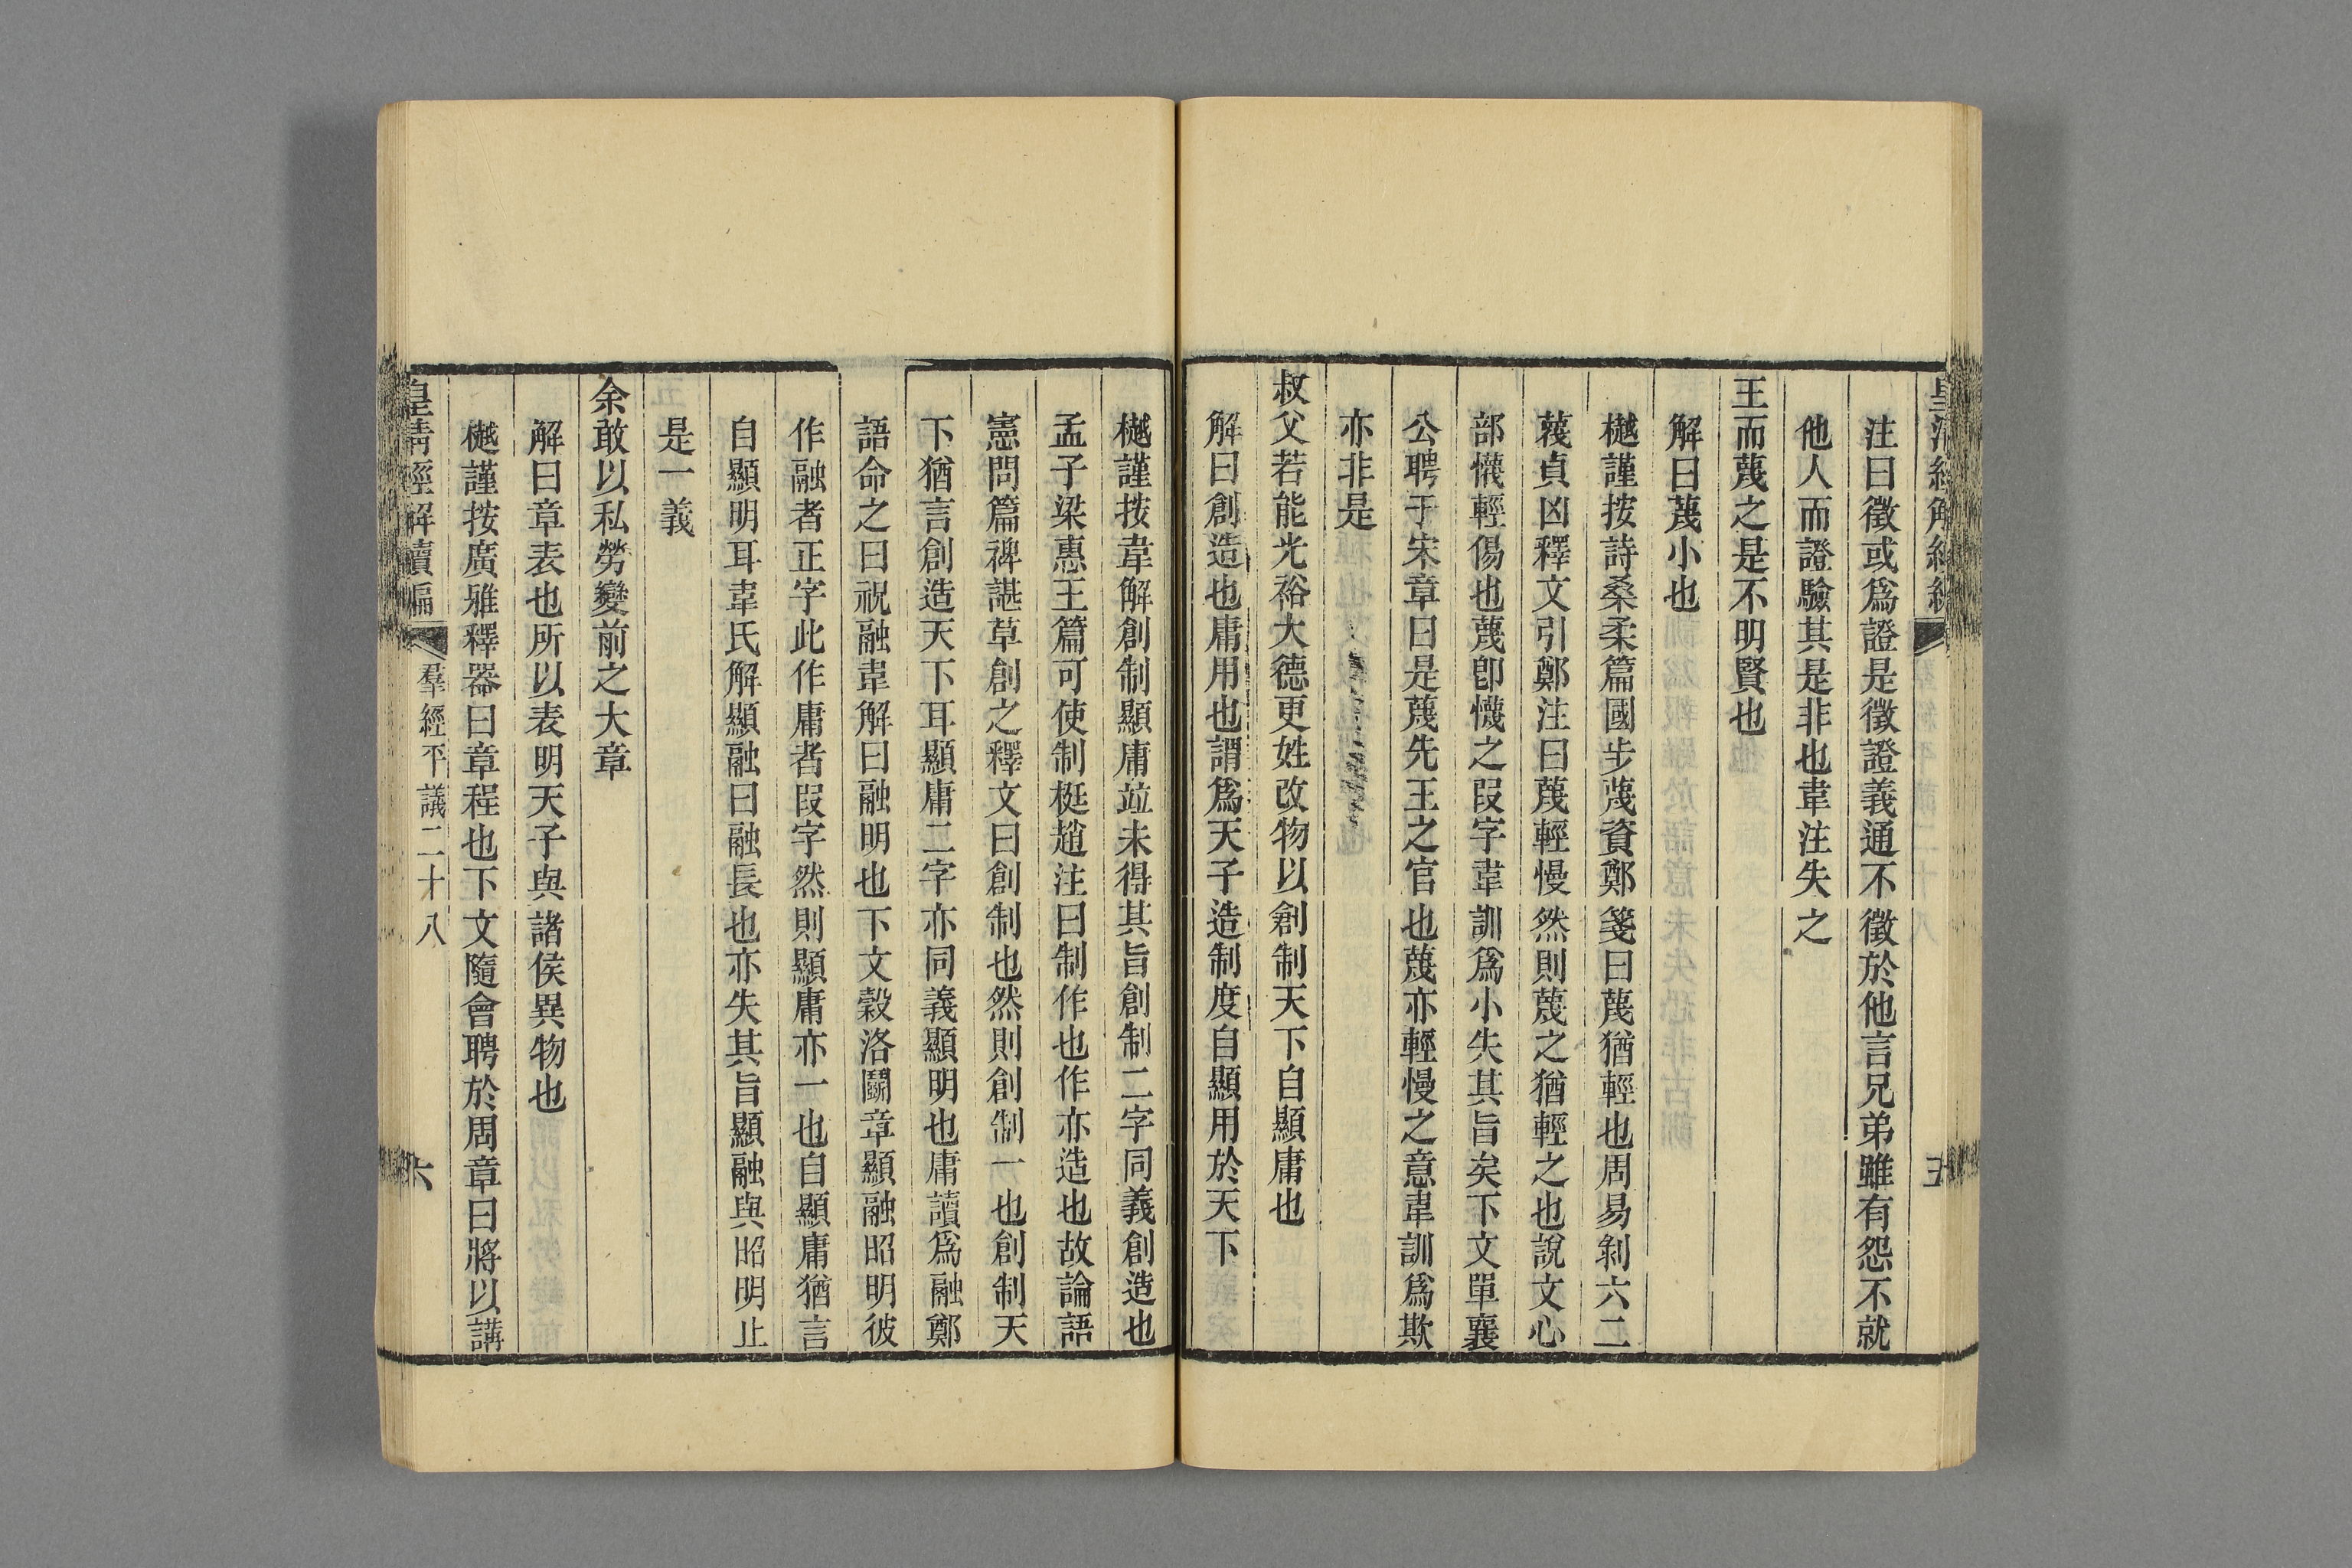 注曰徵或爲證是徵證義通不徵於他言兄弟雖有怨不就
他人而證驗其是非也韋注失之
王而蔑之是不明賢也
解曰蔑小也
樾謹按詩桑柔篇國步蔑資鄭箋曰蔑猶輕也周易剝六二
蔑貞凶釋文引鄭注曰蔑輕慢然則蔑之猶輕之也說文心
部懱輕傷也蔑卽懱之叚字韋訓爲小失其旨矣下文單襄
公聘于宋章曰是蔑先王之官也蔑亦輕慢之意韋訓爲欺
亦非是
叔父若能光裕大德更姓改物以創制天下自顯庸也
解曰創造也庸用也謂爲天子造制度自顯用於天下
樾謹按韋解創制顯庸竝未得其旨創制二字同義創造也
孟子梁惠王篇可使制梃趙注曰制作也作亦造也故論語
憲問篇裨諶草創之釋文曰創制也然則創制一也創制天
下猶言創造天下耳顯庸二字亦同義顯明也庸讀爲融鄭
語命之曰祝融韋解曰融明也下文穀洛鬭章顯融昭明彼
作融者正字此作庸者叚字然則顯庸亦一也自顯庸猶言
自顯明耳韋氏解顯融曰融長也亦失其旨顯融與昭明止
是一義
余敢以私勞變前之大章
解曰章表也所以表明天子與諸侯異物也
樾謹按廣雅釋器曰章程也下文隨會聘於周章曰將以講
皇清經解續編 羣經平議二十八 六